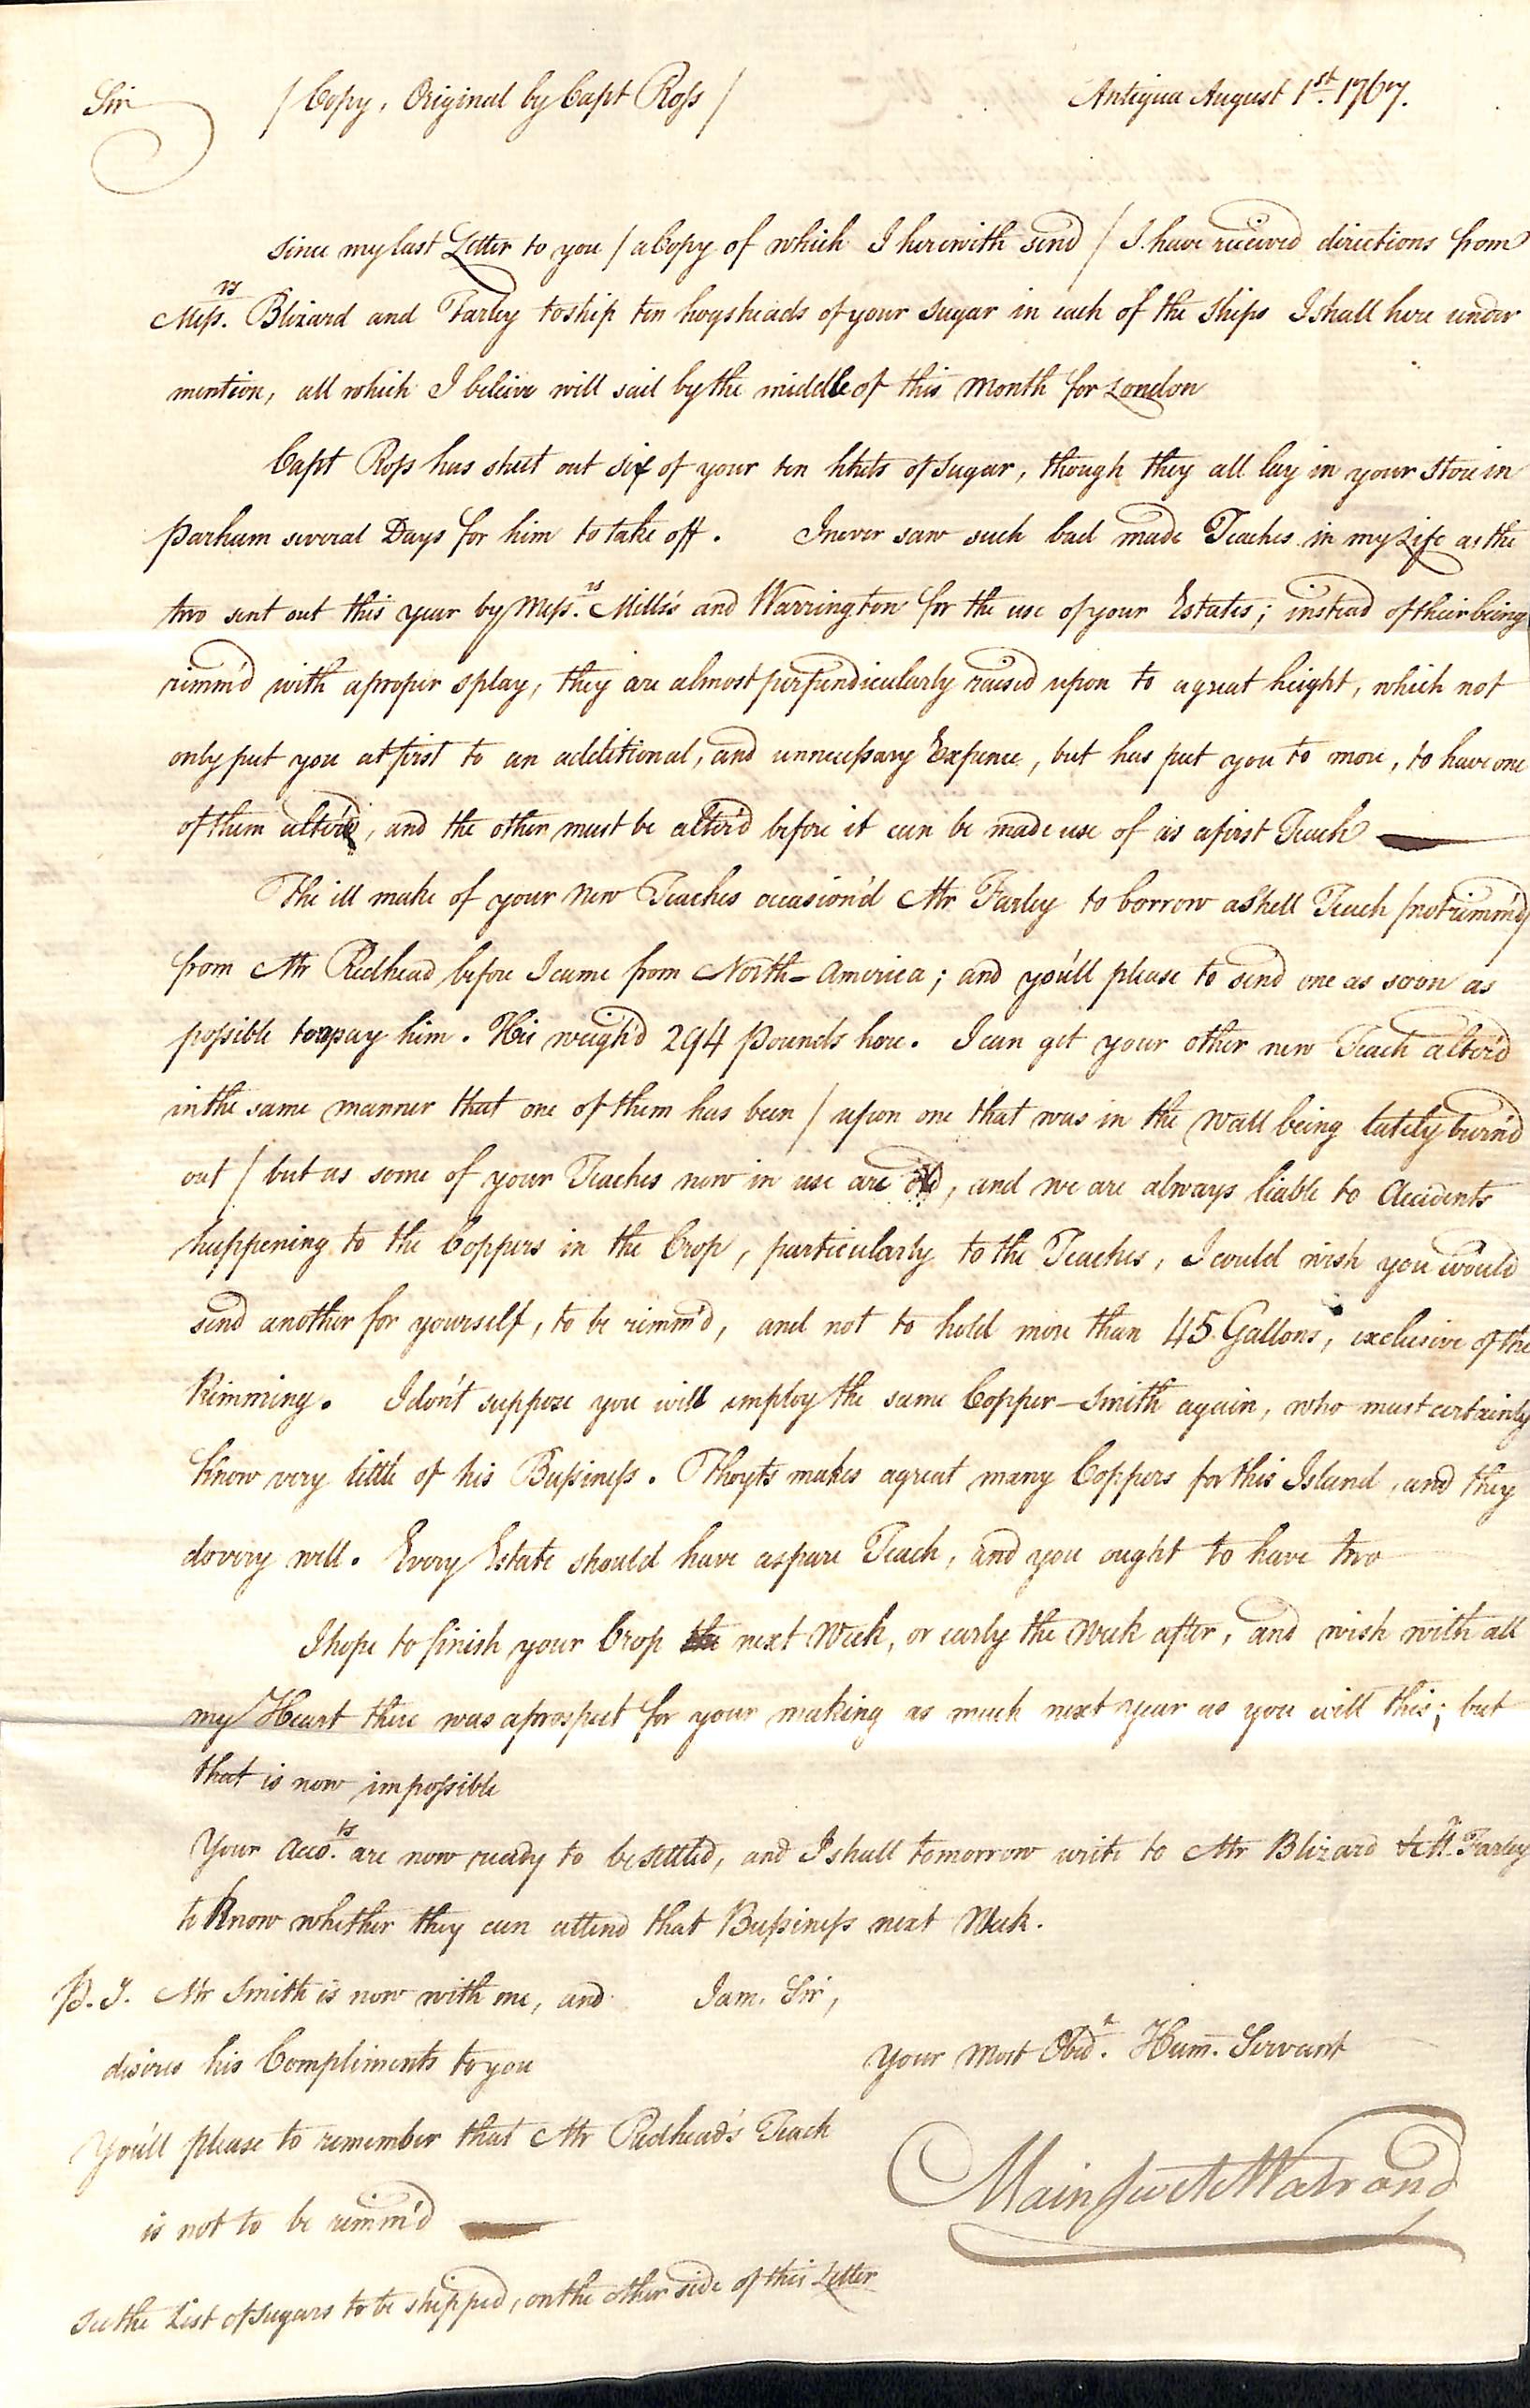 Sir / Copy, Original by Capt Ross / Antigua August 1st. 1767.
Since my last Letter to you / a Copy of which I herewith send / I have received directions from
Messrs. Blizard and Farley to ship ten hogsheads of your Sugar in each of the Ships I shall here under
mention, all which I beleive will sail by the middle of this Month for London
Capt Ross has shut out six of your ten hhds of Sugar, though they all lay in your Store in
Parham several Days for him to take off. I never saw such bad made Teaches in my Life as the
two sent out this year by Messrs. Mills's and Warrington for the use of your Estates; instead of their being
rimm'd with a proper splay, they are almost perpendicularly raised upon to a great height, which not
only put you at first to an additional, and unnecessary Expence, but has put you to more, to have one
of them alter'd, and the other must be alter'd before it can be made use of as a first Teach
The ill make of your New Teaches occasion'd Mr Farley to borrow a Shell Teach /not rimm'd/
from Mr Redhead before I came from North-America; and you'll please to send one as soon as
possible to repay him. His weigh'd 294 Pounds here. I can get your other new Teach alter'd
in the same manner that one of them has been / upon one that was in the Wall being lately burn'd
out / but as some of your Teaches now in use are old, and we are always liable to Accidents
happening to the Coppers in the Crop, particularly to the Teaches, I could wish you would
send another for yourself, to be rimm'd, and not to hold more than 45 Gallons, exclusive of the
Rimming. I don't suppose you will employ the same Copper-Smith again, who must certainly
know very little of his Bussiness. Thoyts makes a great many Coppers for this Island, and they
do very well. Every Estate should have a spare Teach, and you ought to have two
I hope to finish your Crop the next Week, or early the Week after, and wish with all
my Heart there was a prospect for your making as much next year as you will this; but
that is now impossible
Your Accots. are now ready to be settled, and I shall tomorrow write to Mr Blizard & Mr. Farley
to know whether they can attend that Bussiness next Week.
P.S. Mr Smith is now with me, and I am, Sir,
desires his Compliments to you
Your Most Obedt. Hum. Servant
You'll please to remember that Mr Redhead's Teach
is not to be rimm'd
Main Swete Walrond
See the List of Sugars to be shipped, on the other side of this Letter